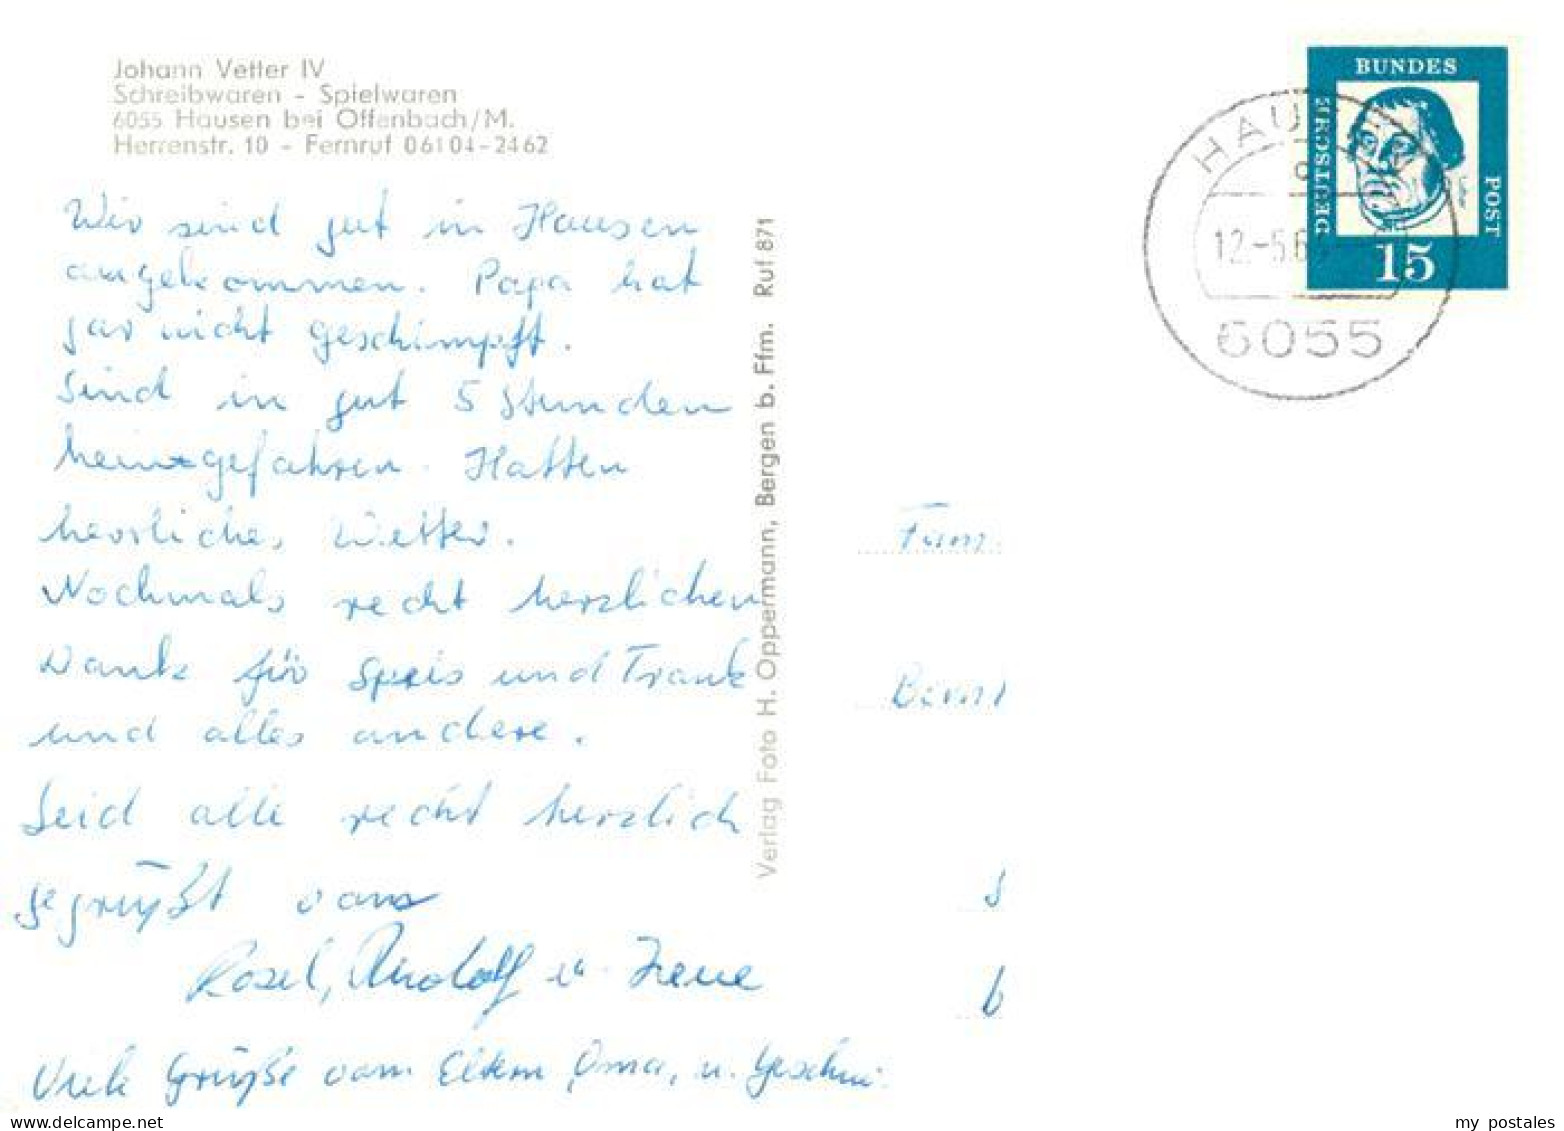 Johann Vetter IV
Schreibwaren - Spielwaren
6055 Hausen bei Offenbach/M.
Herrenstr. 10 - Fernruf 06104-2462
Wir sind gut in Hausen
angekommen. Papa hat
gar nicht geschimpft.
Sind in gut 5 Stunden
heimgefahren. Hatten
herrliches Wetter.
Nochmals recht herzlichen
Dank für Speis und Trank
und alles andere.
Seid alle recht herzlich
gegrüßt von
Rosel, Rudolf u. Irene
Viele Grüße vom Eltern, Oma, u. Geschwi.
Verlag Foto H. Oppermann, Bergen b. Ffm. Ruf 871
Fam.
b
DEUTSCHE
BUNDES
POST
15
HAUSEN
12.-5.6
6055
my postales